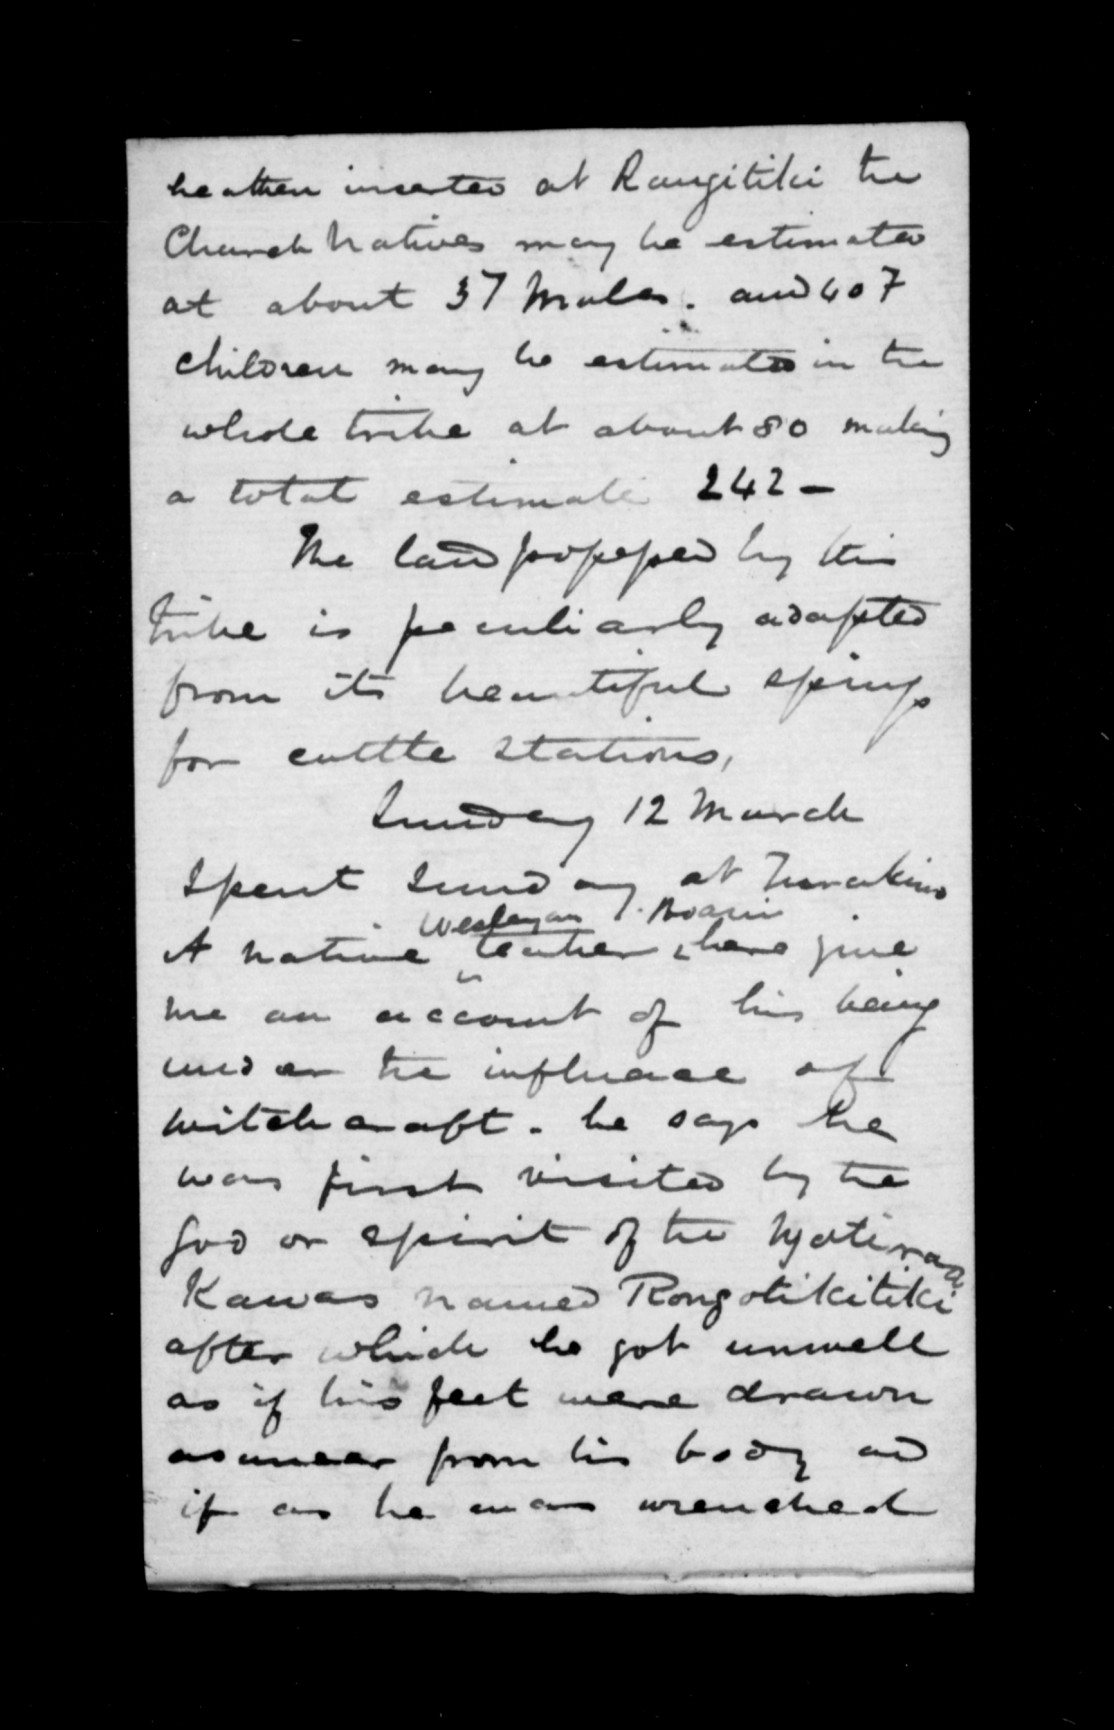 heathen inserted at Rangitiki the
Church Natives may be estimated
at about 37 Males. and 40 F
children may be estimated in the
whole tribe at about 80 making
a total estimate 242 –
The land possessed by this
tribe is peculiarly adapted
from its beautiful springs
for cattle stations,
Sunday 12 March
Spent Sunday at Turakino
Wesleyan
A native teacher here give
me an account of his being
under the influence of
witchcraft. he says he
was first visited by the
God or spirit of the Ngatiraa
Kawas named Rongotikitiki
after which he got unwell
as if his feet were drawn
asunder from his body and
if as he was wrenched